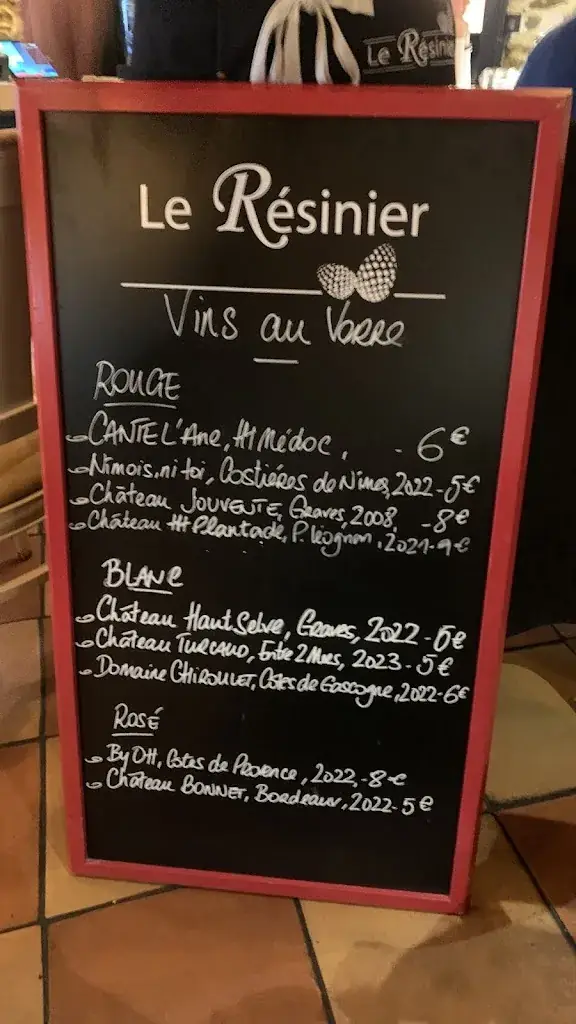 Le Résinie
Le Résinier
Vins au Verre
ROUGE
CANTEL'Ane, Ht Médoc, - 6€
Nimois, ni toi, Costiéres de Nimes, 2022 - 5€
Château JOUVENTE, Graves, 2008, - 8€
Château Ht Plantade, P. léognan, 2021 - 9€
BLANC
Château Haut Selve, Graves, 2022 - 6€
Château TURCAUD, Entre 2 Mers, 2023 - 5€
Domaine CHIROULET, Côtes de Gascogne, 2022 - 6€
ROSÉ
By Ott, Cotes de Provence, 2022, - 8€
Château BONNET, Bordeaux, 2022 - 5€